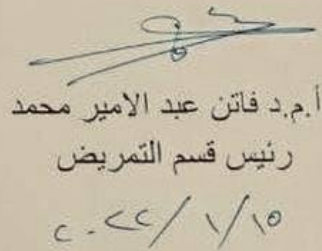 أ.م.د فاتن عبد الامير محمد
رئيس قسم التمريض
٢٠٢٢/١/١٥